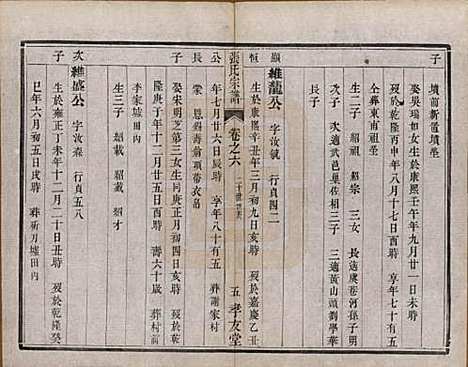 子
墳前新電墳坐
娶吳瑞如女生於康熙壬午年九月廿一未時
歿於乾隆丙申年八月十七日午時 享年七十有五
仝葬東南祖塋
生二子 紹祖 紹宗 三女 長適虞巷河徐子明
次適武邑單佐相 三適黃山頭劉學華
長子
顯恒
維龍公 字汝號 行貞四二
生於康熙辛丑年三月初九日亥時 歿於嘉慶乙丑
公
年七月廿六日辰時 享年八十有五 葬謝家村
蒙 恩錫壽翁頂帶衣帛
長
娶宋明芝第三女生同庚正月初四日亥時 歿於乾
子
隆庚子年十二月廿五日酉時 壽六十歲 葬村前
李家墳田內
生三子 紹載 紹戴 紹才
次子
維盛公 字汝森 行貞五八
生於雍正丁未年十二月二十日丑時 歿於乾隆癸
巳年六月初五日戌時 葬新月墟田內
張氏宗譜 卷之六 二十世 五 孝友堂